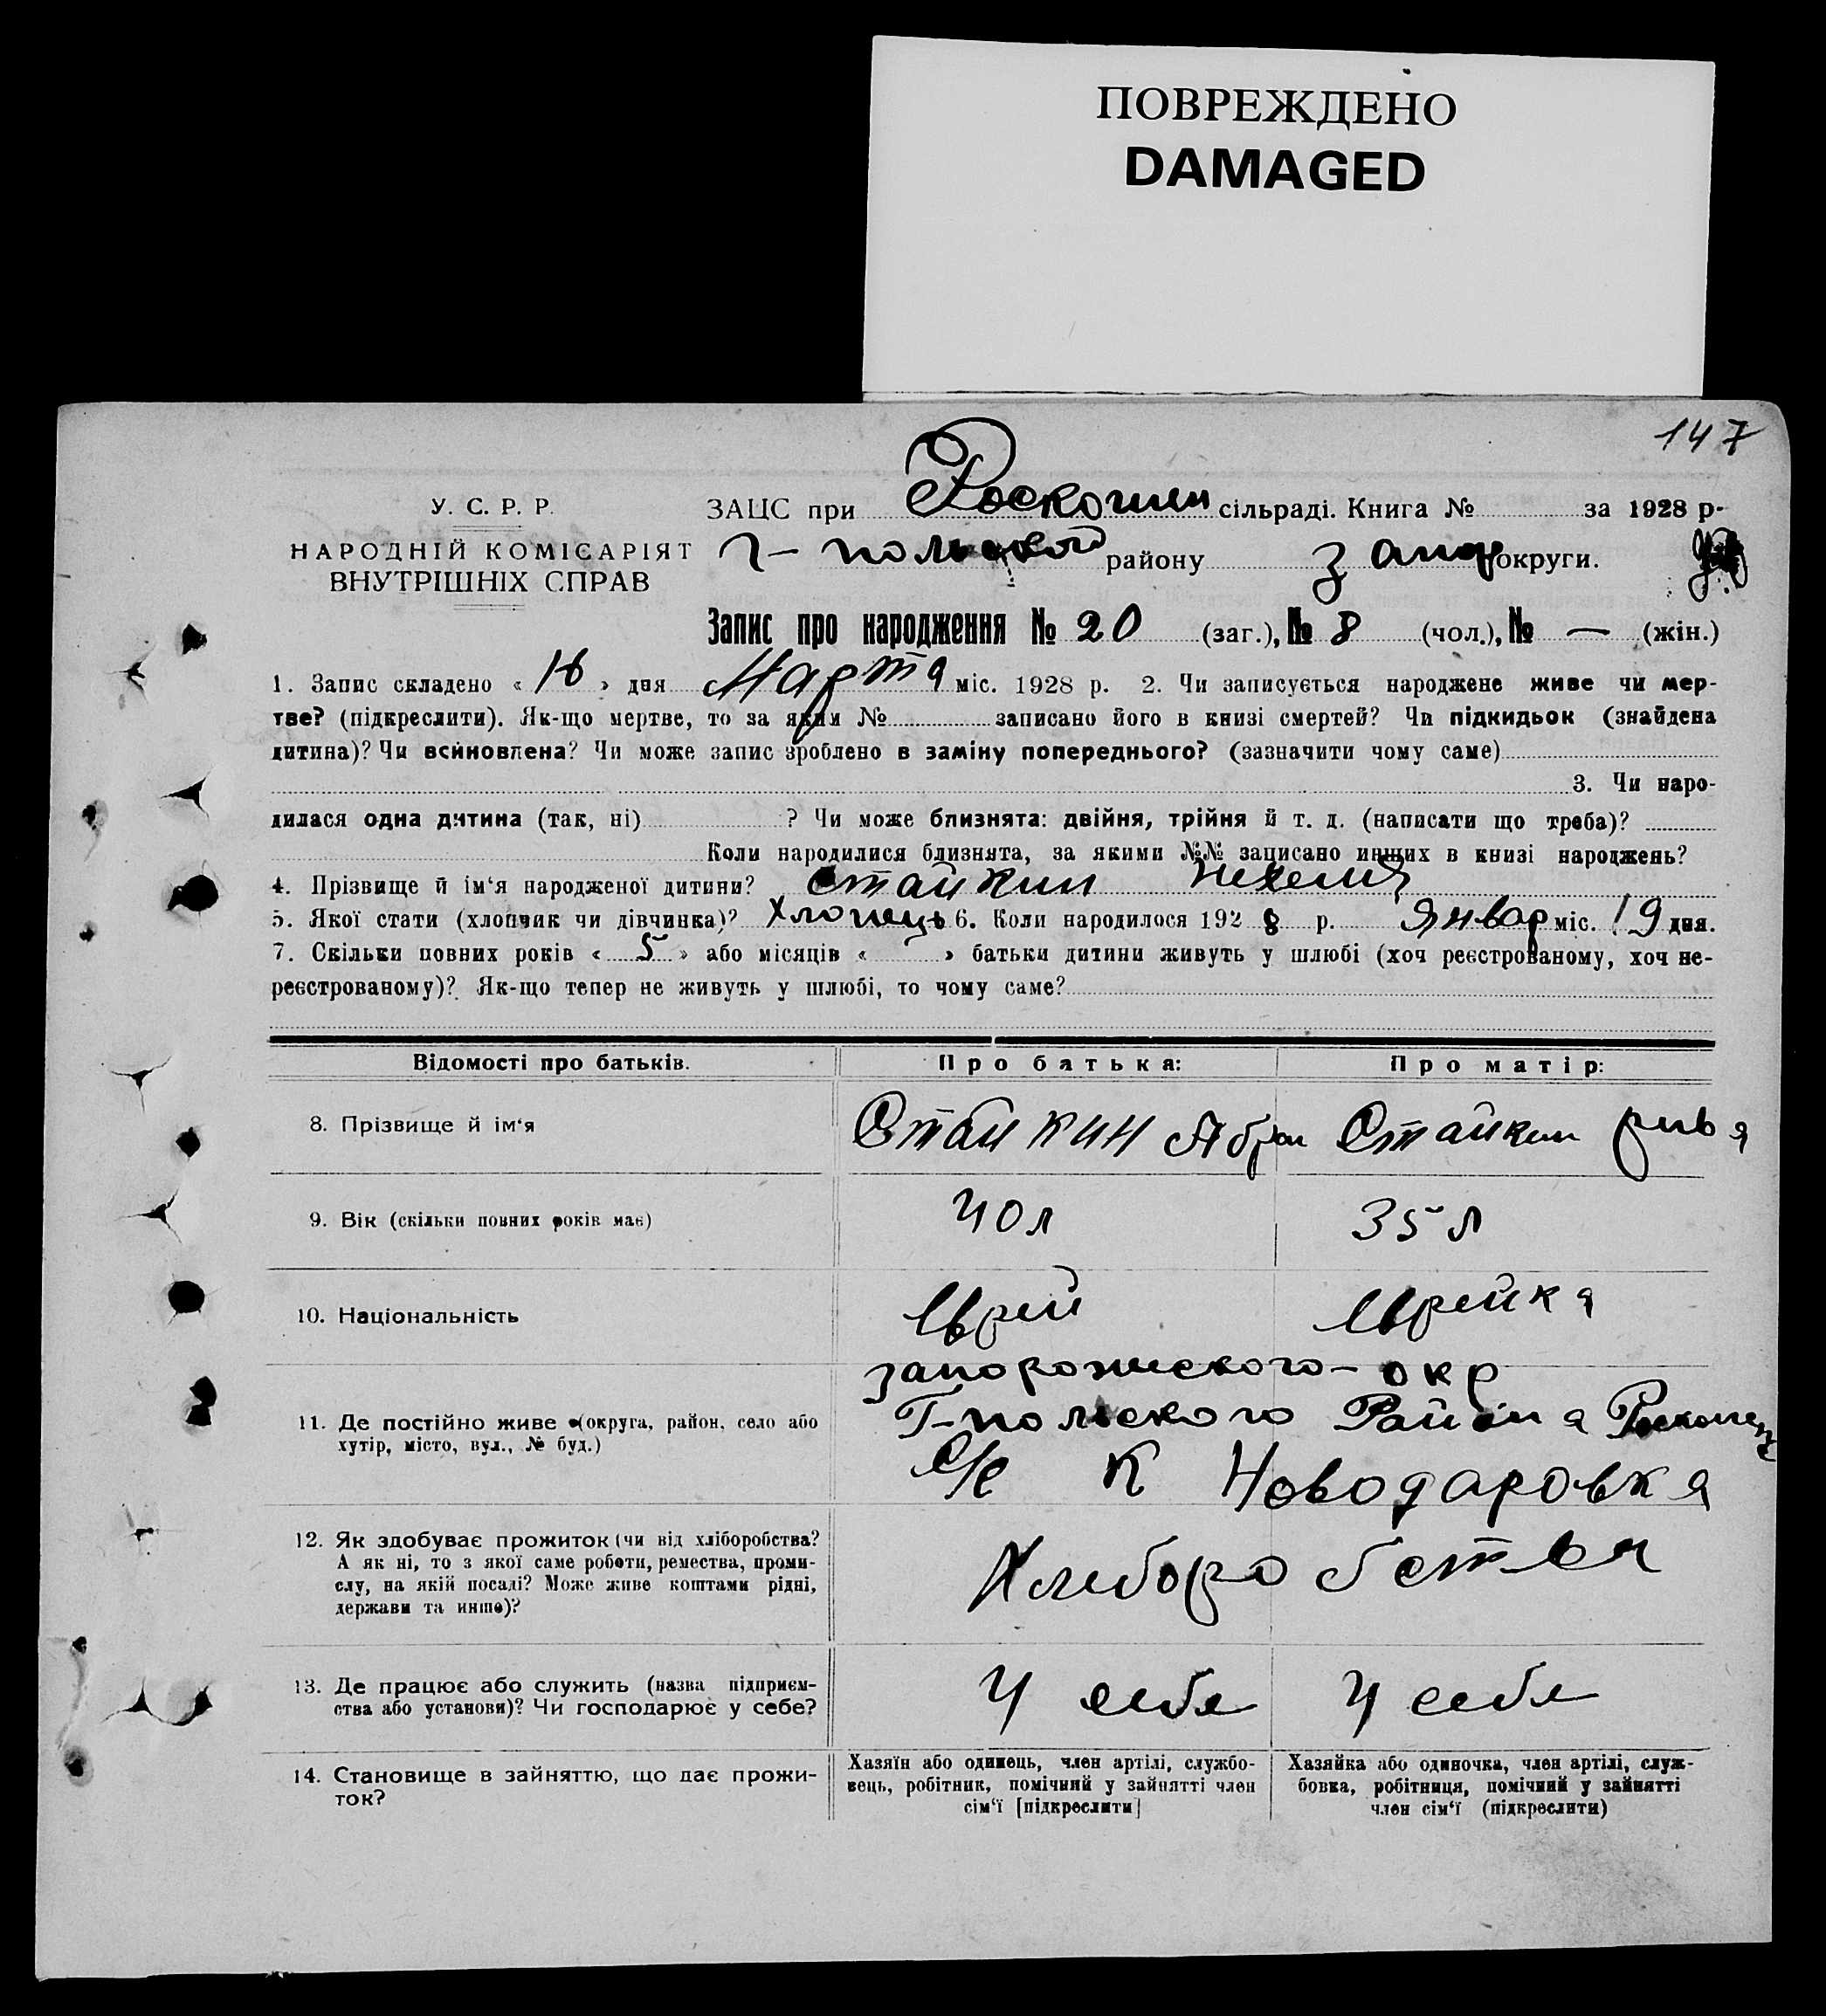 ПОВРЕЖДЕНО
DAMAGED
147
У. С. Р. Р.
НАРОДНІЙ КОМІСАРІЯТ
ВНУТРІШНІХ СПРАВ
ЗАЦС при сільраді. Книга № за 1928 р.
Г-польской району Запор округи.
Запис про народження № 20 (заг.), № 8 (чол.), № — (жін.)
1. Запис складено « » дня Марта міс. 1928 р. 2. Чи записується народжене живе чи мер-
тве? (підкреслити). Як-що мертве, то за яким № записано його в книзі смертей? Чи підкидьок (знайдена
дитина)? Чи всиновлена? Чи може запис зроблено в заміну попереднього? (зазначити чому саме)
3. Чи наро-
дилася одна дитина (так, ні) ? Чи може близнята: двійня, трійня й т. д. (написати що треба)?
Коли народилися близнята, за якими №№ записано инших в книзі народжень?
4. Прізвище й ім'я народженої дитини? Стайкин
5. Якої стати (хлопчик чи дівчинка)? Хлопець 6. Коли народилося 192 8 р. Январ міс. 19 дня.
7. Скільки повних років « 5 » або місяців « » батьки дитини живуть у шлюбі (хоч реєстрованому, хоч не-
реєстрованому)? Як-що тепер не живуть у шлюбі, то чому саме?
Відомості про батьків.
Про батька:
Про матір:
8. Прізвище й ім'я
Стайкин Абрам
Стайкин
9. Вік (скільки повних років має)
40 л
35 л
10. Національність
Єврей
Єврейка
11. Де постійно живе (округа, район, село або
хутір, місто, вул., № буд.)
Запорожского - окр
Г-польского Района
С/С К Новодаровка
12. Як здобуває прожиток (чи від хліборобства?
А як ні, то з якої саме роботи, ремества, проми-
слу, на якій посаді? Може живе коштами рідні,
держави та инше)?
Хлиборобства
13. Де працює або служить (назва підприєм-
ства або установи)? Чи господарює у себе?
У себя
У себя
14. Становище в зайняттю, що дає прожи-
ток?
Хазяїн або одинець, член артілі, службо-
вець, робітник, помічний у зайнятті член
сім'ї [підкреслити]
Хазяйка або одиночка, член артілі, служ-
бовка, робітниця, помічний у зайнятті
член сім'ї (підкреслити)